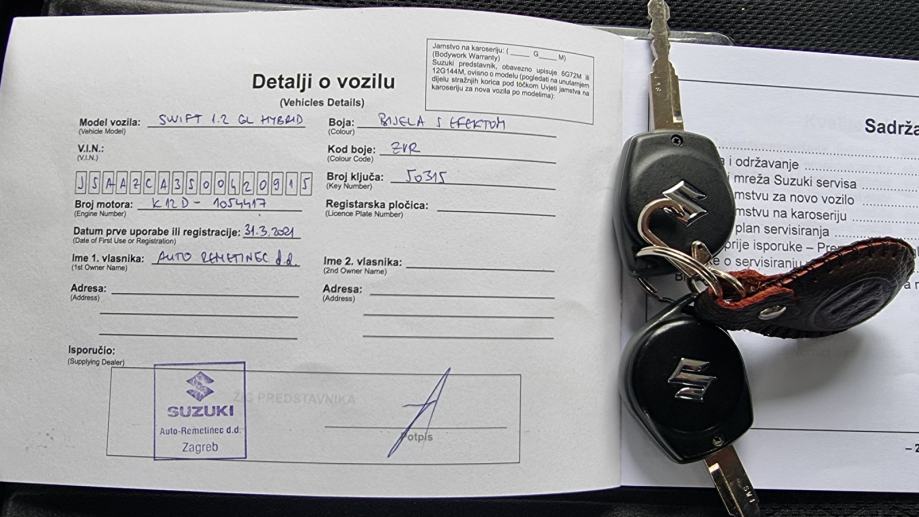 Jamstvo na karoseriju: ( ____ G ____ M)
(Bodywork Warranty)
Suzuki predstavnik, obavezno upisuje 6G72M ili
12G144M, ovisno o modelu (pogledati na unutarnjem
dijelu stražnjih korica pod točkom Uvjeti jamstva na
karoseriju za nova vozila po modelima):
Detalji o vozilu
(Vehicles Details)
Model vozila: SWIFT 1.2 GL HYBRID
(Vehicle Model)
Boja: BIJELA S EFEKTOM
(Colour)
V.I.N.:
(V.I.N.)
Kod boje: ZVR
(Colour Code)
JSAAZCA3500420915
Broj ključa: 50315
(Key Number)
Broj motora: K12D - 1054417
(Engine Number)
Registarska pločica:
(Licence Plate Number)
Datum prve uporabe ili registracije: 31.3.2021
(Date of First Use or Registration)
Ime 1. vlasnika: AUTO REMETINEC d.d.
(1st Owner Name)
Ime 2. vlasnika:
(2nd Owner Name)
Adresa:
(Address)
Adresa:
(Address)
Isporučio:
(Supplying Dealer)
PREDSTAVNIKA
SUZUKI
Auto-Remetinec d.d.
Zagreb
Potpis
Sadrža
a i održavanje
i mreža Suzuki servisa
mstvu za novo vozilo
mstvu na karoseriju
plan servisiranja
prije isporuke – Pre
e o servisiranju
– 2